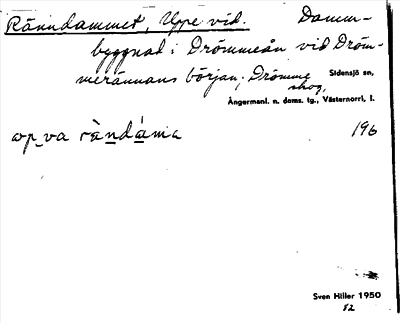 Ränndammet, Uppe vid. Damm-
byggnad i Drömmeån vid Dröm-
merännans början; Drömme
skog, Sidensjö sn,
Ångermanl. n. doms. tg., Västernorrl. l.
196
Sven Hiller 1950
82